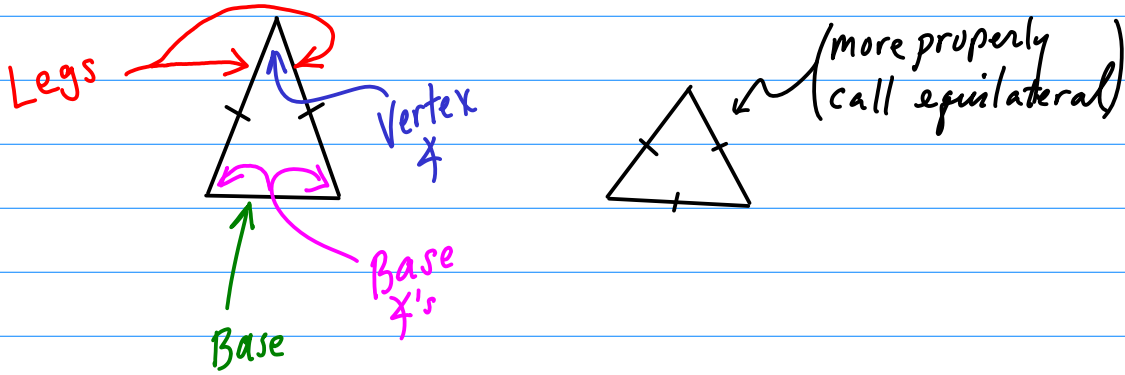 Legs
Vertex
∡
Base
∡'s
Base
(more properly
call equilateral)